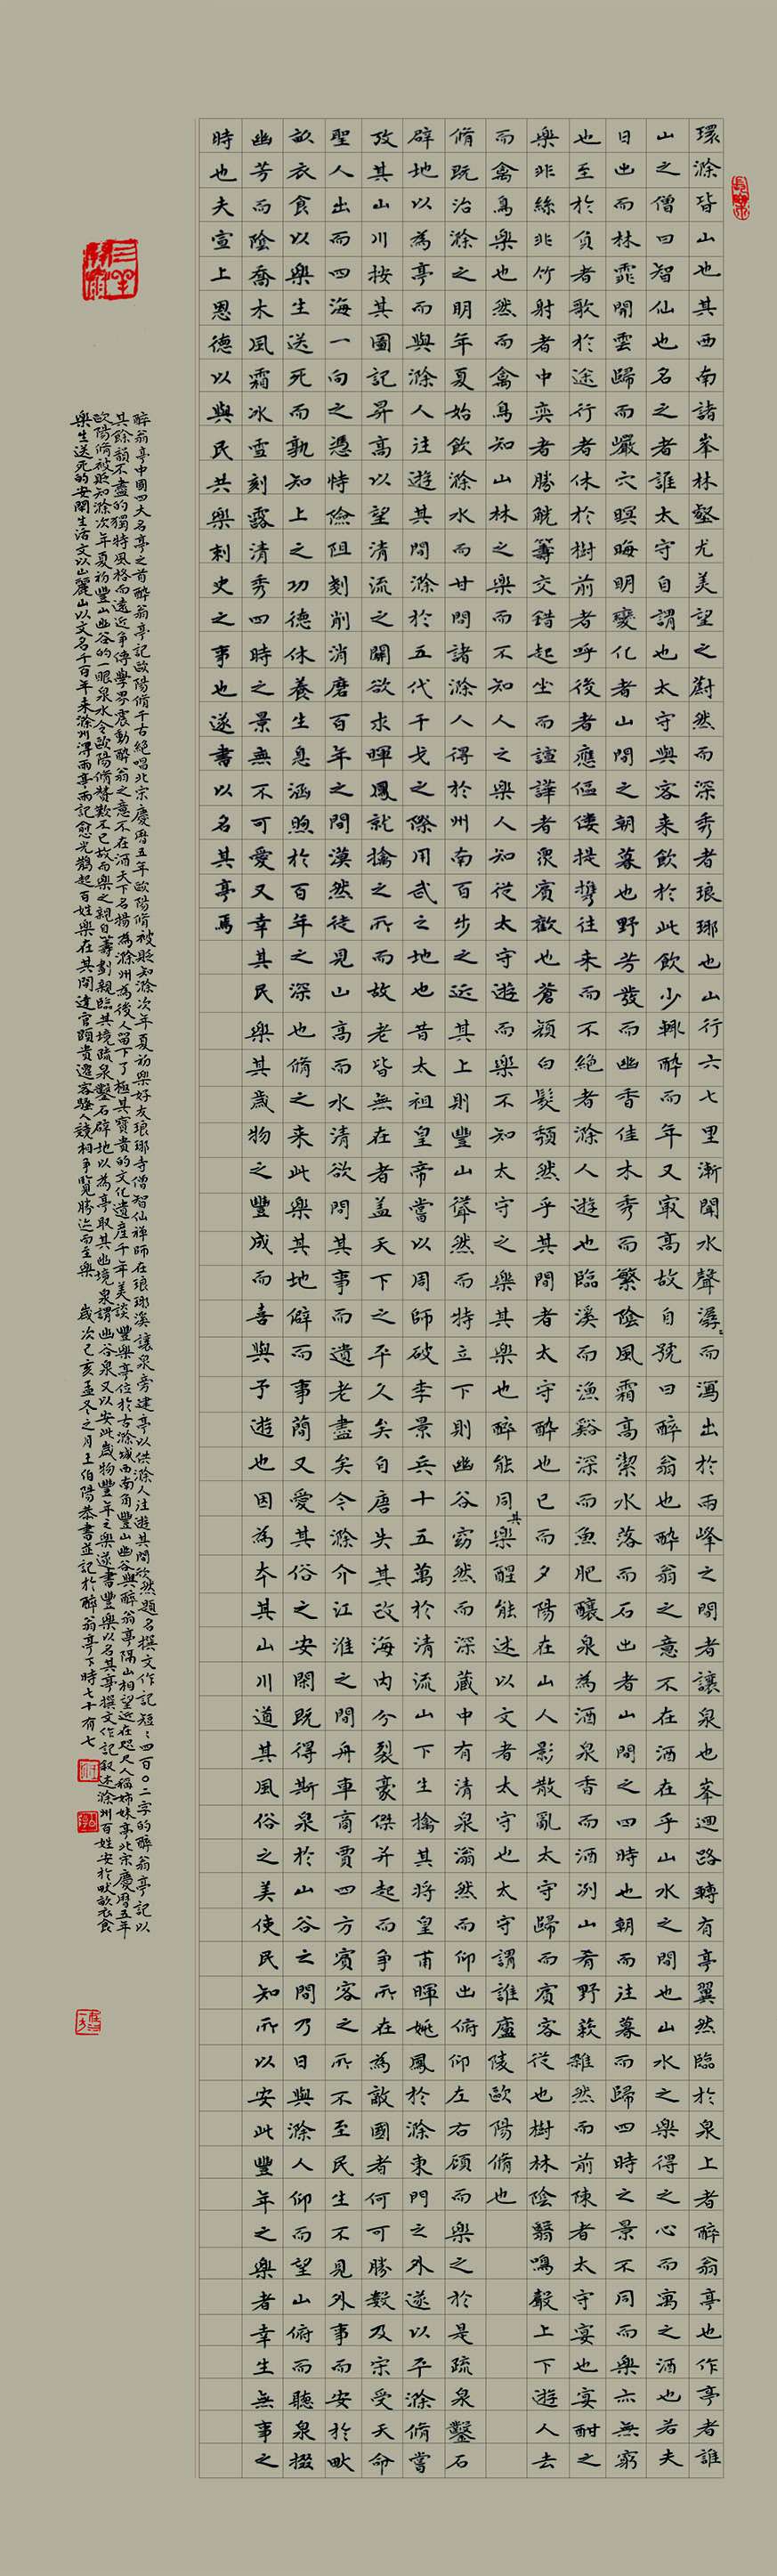 環滁皆山也其西南諸峯林壑尤美望之蔚然而深秀者琅琊也山行六七里漸聞水聲潺〻而瀉出於兩峰之間者讓泉也峯迴路轉有亭翼然臨於泉上者醉翁亭也作亭者誰
山之僧曰智仙也名之者誰太守自謂也太守與客来飲於此飲少輒醉而年又寂高故自號曰醉翁也醉翁之意不在酒在乎山水之間也山水之樂得之心而寓之酒也若夫
日出而林霏開雲歸而巖穴暝晦明變化者山間之朝暮也野芳發而幽香佳木秀而繁陰風霜高潔水落而石出者山間之四時也朝而往暮而歸四時之景不同而樂亦無窮
也至於負者歌於途行者休於樹前者呼後者應傴僂提攜往来而不絕者滁人遊也臨溪而漁谿深而魚肥釀泉為酒泉香而酒冽山肴野蔌雜然而前陳者太守宴也宴酣之
樂非絲非竹射者中奕者勝觥籌交錯起坐而諠譁者衆賓歡也蒼顏白髮頹然乎其間者太守醉也已而夕陽在山人影散亂太守歸而賓客從也樹林陰翳鳴聲上下遊人去
而禽鳥樂也然而禽鳥知山林之樂而不知人之樂人知從太守遊而樂不知太守之樂其樂也醉能同其樂醒能述以文者太守也太守謂誰廬陵歐陽脩也
脩既治滁之明年夏始飲滁水而甘問諸滁人得於州南百步之近其上則豐山聳然而特立下則幽谷窈然而深藏中有清泉滃然而仰出俯仰左右顧而樂之於是疏泉鑿石
辟地以為亭而與滁人往遊其間滁於五代干戈之際用武之地也昔太祖皇帝嘗以周師破李景兵十五萬於清流山下生擒其將皇甫暉姚鳳於滁東門之外遂以平滁脩嘗
攷其山川按其圖記昇高以望清流之關欲求暉鳳就擒之所而故老皆無在者蓋天下之平久矣自唐失其政海內分裂豪傑并起而爭所在為敵國者何可勝數及宋受天命
聖人出而四海一向之憑恃險阻剗削消磨百年之間漠然徒見山高而水清欲問其事而遺老盡矣今滁介江淮之間舟車商賈四方賓客之所不至民生不見外事而安於畎
畝衣食以樂生送死而孰知上之功德休養生息涵煦於百年之深也脩之来此樂其地僻而事簡又愛其俗之安閑既得斯泉於山谷之間乃日與滁人仰而望山俯而聽泉掇
幽芳而陰喬木風霜冰雪刻露清秀四時之景無不可愛又幸其民樂其歲物之豐成而喜與予遊也因為本其山川道其風俗之美使民知所以安此豐年之樂者幸生無事之
時也夫宣上恩德以與民共樂刺史之事也遂書以名其亭焉
醉翁亭中國四大名亭之首醉翁亭記歐陽脩千古絕唱北宋慶曆五年歐陽脩被貶知滁次年夏初樂好友琅琊寺僧智仙禅師在琅琊溪讓泉旁建亭以供滁人往遊其間欣然題名撰文作記短〻四百〇二字的醉翁亭記以
其餘韻不盡的獨特風格而遠近争傳學界震動醉翁之意不在酒天下名揚為滁州為後人留下了極其寶貴的文化遺產千年美談豐樂亭位於古滁城西南角豐山幽谷與醉翁亭隔山相望近在咫尺人稱姊妹亭北宋慶曆五年
歐陽脩被貶知滁次年夏初豐山幽谷的一眼泉水令歐陽脩赞歎不已故而樂之親自籌劃親臨其境疏泉鑿石辟地以為亭取其幽境泉謂幽谷泉又以安此歲物豐年之樂遂書豐樂以名其亭撰文作記叙述滁州百姓安於畎畝衣食
樂生送死的安閑生活文以山麗山以文名千百年来滁州淂兩亭兩記愈光鵲起百姓樂在其間達官顕貴遷客騷人競相争覧勝迹而至樂 歲次己亥孟冬之月王伯陽恭書並記於醉翁亭下時七十有七